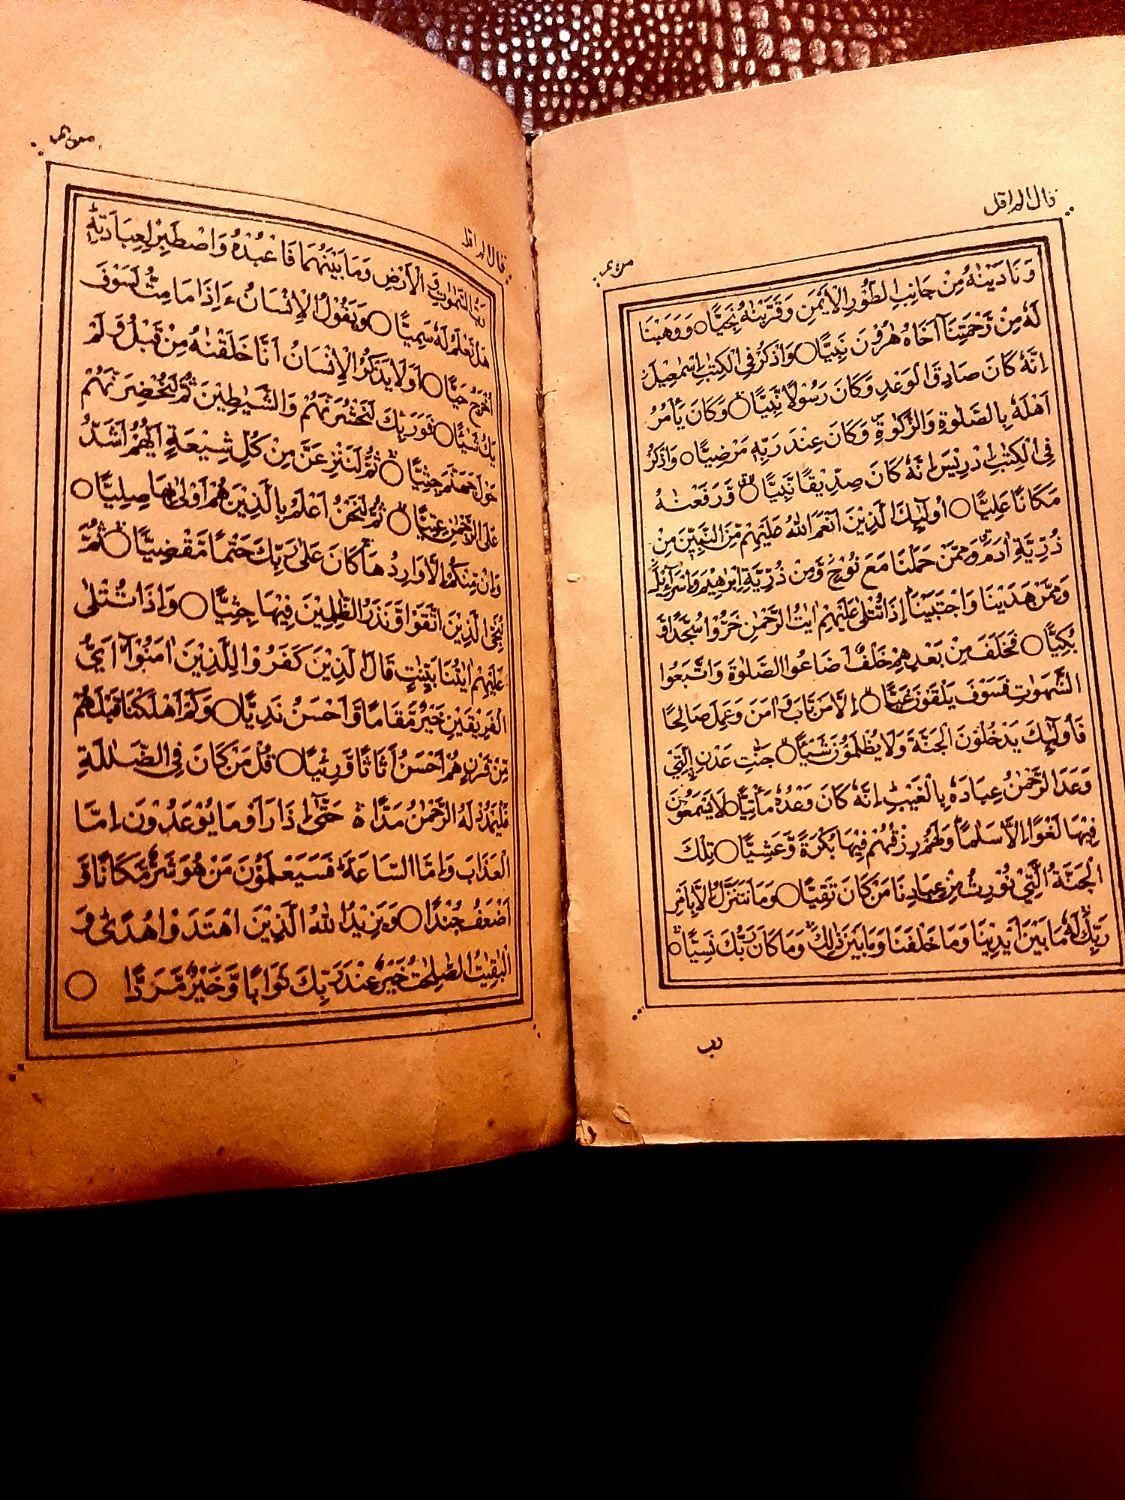 قال الم اقل
مريم
وَنَادَيْنٰهُ مِنْ جَانِبِ الطُّوْرِ الْاَيْمَنِ وَقَرَّبْنٰهُ نَجِيًّا○ وَوَهَبْنَا
لَهٗ مِنْ رَّحْمَتِنَاۤ اَخَاهُ هٰرُوْنَ نَبِيًّا○ وَاذْكُرْ فِى الْكِتٰبِ اِسْمٰعِيْلَ
اِنَّهٗ كَانَ صَادِقَ الْوَعْدِ وَكَانَ رَسُوْلًا نَّبِيًّا○ وَكَانَ يَاْمُرُ
اَهْلَهٗ بِالصَّلٰوةِ وَالزَّكٰوةِ وَكَانَ عِنْدَ رَبِّهٖ مَرْضِيًّا○ وَاذْكُرْ
فِى الْكِتٰبِ اِدْرِيْسَ اِنَّهٗ كَانَ صِدِّيْقًا نَّبِيًّا○ وَّرَفَعْنٰهُ
مَكَانًا عَلِيًّا○ اُولٰٓئِكَ الَّذِيْنَ اَنْعَمَ اللّٰهُ عَلَيْهِمْ مِّنَ النَّبِيّٖنَ مِنْ
ذُرِّيَّةِ اٰدَمَ وَمِمَّنْ حَمَلْنَا مَعَ نُوْحٍ وَّمِنْ ذُرِّيَّةِ اِبْرٰهِيْمَ وَاِسْرَآءِيْلَ
وَمِمَّنْ هَدَيْنَا وَاجْتَبَيْنَا اِذَا تُتْلٰى عَلَيْهِمْ اٰيٰتُ الرَّحْمٰنِ خَرُّوْا سُجَّدًا وَّ
بُكِيًّا○ فَخَلَفَ مِنْۢ بَعْدِهِمْ خَلْفٌ اَضَاعُوا الصَّلٰوةَ وَاتَّبَعُوا
الشَّهَوٰتِ فَسَوْفَ يَلْقَوْنَ غَيًّا○ اِلَّا مَنْ تَابَ وَاٰمَنَ وَعَمِلَ صَالِحًا
فَاُولٰٓئِكَ يَدْخُلُوْنَ الْجَنَّةَ وَلَا يُظْلَمُوْنَ شَيْئًا○ جَنّٰتِ عَدْنِ الَّتِىْ
وَعَدَ الرَّحْمٰنُ عِبَادَهٗ بِالْغَيْبِ اِنَّهٗ كَانَ وَعْدُهٗ مَاْتِيًّا○ لَا يَسْمَعُوْنَ
فِيْهَا لَغْوًا اِلَّا سَلٰمًا وَلَهُمْ رِزْقُهُمْ فِيْهَا بُكْرَةً وَّعَشِيًّا○ تِلْكَ
الْجَنَّةُ الَّتِىْ نُوْرِثُ مِنْ عِبَادِنَا مَنْ كَانَ تَقِيًّا○ وَمَا نَتَنَزَّلُ اِلَّا بِاَمْرِ
رَبِّكَ لَهٗ مَا بَيْنَ اَيْدِيْنَا وَمَا خَلْفَنَا وَمَا بَيْنَ ذٰلِكَ وَمَا كَانَ رَبُّكَ نَسِيًّا
رب
قال الم اقل
مريم
رَبُّ السَّمٰوٰتِ وَالْاَرْضِ وَمَا بَيْنَهُمَا فَاعْبُدْهُ وَاصْطَبِرْ لِعِبَادَتِهٖ
هَلْ تَعْلَمُ لَهٗ سَمِيًّا○ وَيَقُوْلُ الْاِنْسَانُ ءَاِذَا مَا مِتُّ لَسَوْفَ
اُخْرَجُ حَيًّا○ اَوَلَا يَذْكُرُ الْاِنْسَانُ اَنَّا خَلَقْنٰهُ مِنْ قَبْلُ وَلَمْ
يَكُ شَيْئًا○ فَوَرَبِّكَ لَنَحْشُرَنَّهُمْ وَالشَّيٰطِيْنَ ثُمَّ لَنُحْضِرَنَّهُمْ
حَوْلَ جَهَنَّمَ جِثِيًّا○ ثُمَّ لَنَنْزِعَنَّ مِنْ كُلِّ شِيْعَةٍ اَيُّهُمْ اَشَدُّ
عَلَى الرَّحْمٰنِ عِتِيًّا○ ثُمَّ لَنَحْنُ اَعْلَمُ بِالَّذِيْنَ هُمْ اَوْلٰى بِهَا صِلِيًّا○
وَاِنْ مِّنْكُمْ اِلَّا وَارِدُهَا كَانَ عَلٰى رَبِّكَ حَتْمًا مَّقْضِيًّا○ ثُمَّ
نُنَجِّى الَّذِيْنَ اتَّقَوْا وَّنَذَرُ الظّٰلِمِيْنَ فِيْهَا جِثِيًّا○ وَاِذَا تُتْلٰى
عَلَيْهِمْ اٰيٰتُنَا بَيِّنٰتٍ قَالَ الَّذِيْنَ كَفَرُوْا لِلَّذِيْنَ اٰمَنُوْۤا اَىُّ
الْفَرِيْقَيْنِ خَيْرٌ مَّقَامًا وَّاَحْسَنُ نَدِيًّا○ وَكَمْ اَهْلَكْنَا قَبْلَهُمْ
مِّنْ قَرْنٍ هُمْ اَحْسَنُ اَثَاثًا وَّرِئْيًا○ قُلْ مَنْ كَانَ فِى الضَّلٰلَةِ
فَلْيَمْدُدْ لَهُ الرَّحْمٰنُ مَدًّا ۃ حَتّٰۤى اِذَا رَاَوْا مَا يُوْعَدُوْنَ اِمَّا
الْعَذَابَ وَاِمَّا السَّاعَةَ فَسَيَعْلَمُوْنَ مَنْ هُوَ شَرٌّ مَّكَانًا وَّ
اَضْعَفُ جُنْدًا○ وَيَزِيْدُ اللّٰهُ الَّذِيْنَ اهْتَدَوْا هُدًى وَ
الْبٰقِيٰتُ الصّٰلِحٰتُ خَيْرٌ عِنْدَ رَبِّكَ ثَوَابًا وَّخَيْرٌ مَّرَدًّا ○